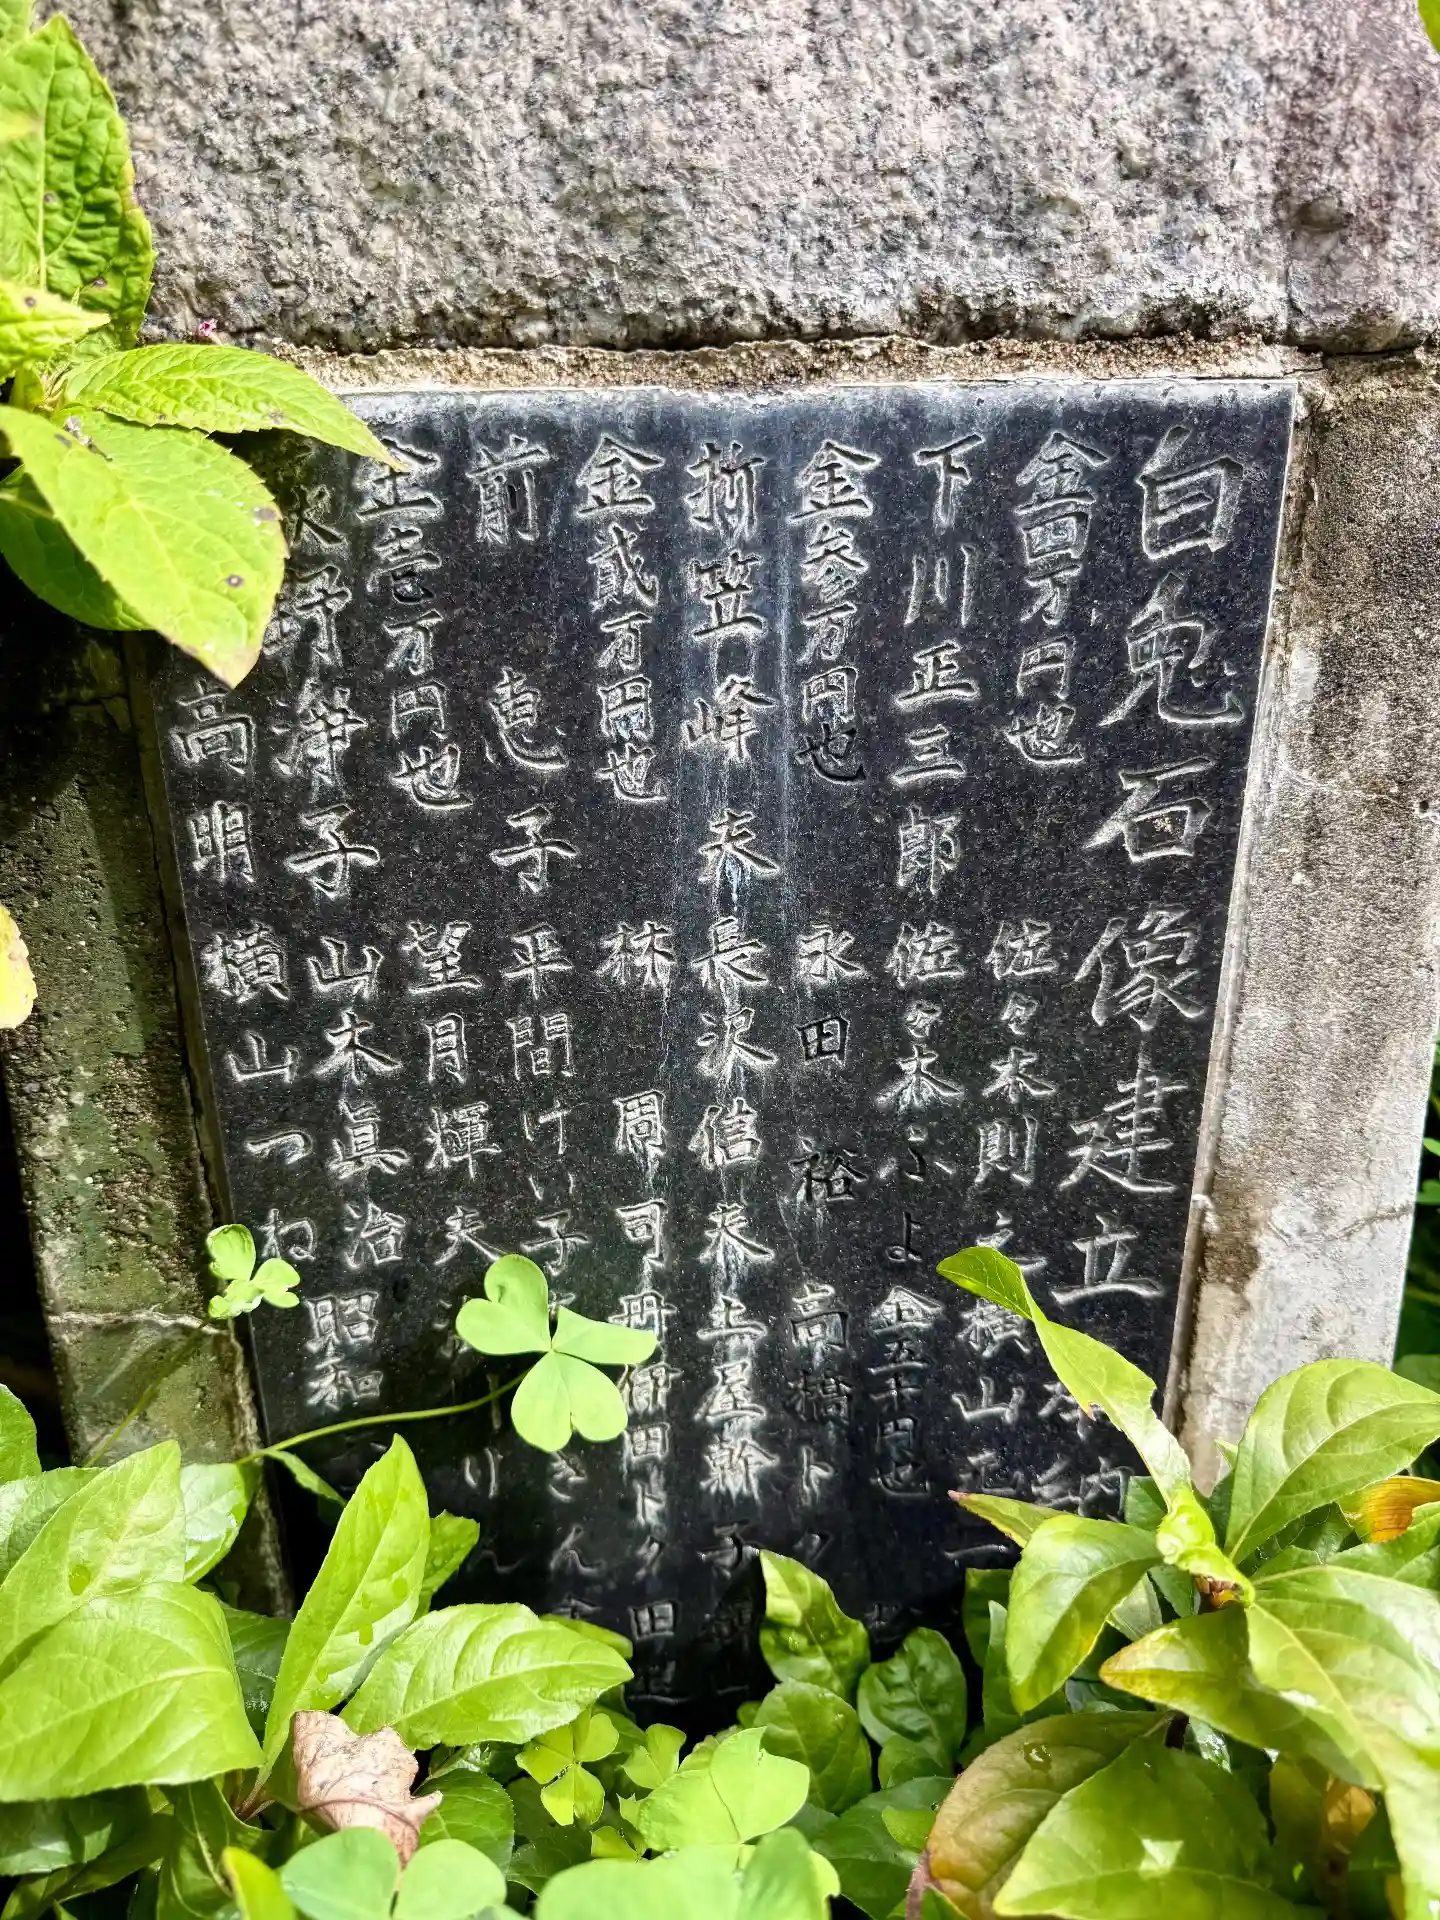 白兎石像建立
金四万円也 佐々木則之 横山正一
下川正三郎 佐々木ふよ 金五十円也
金参万円也 永田裕 高橋トク
折笠峰夫 長沢信夫 土屋幹子
金貮万円也 林周司 丹伊田トク 田
前恵子 平間けい子 きん
金壱万円也 望月輝夫 り
浄子 山木眞治 昭和
高明 横山つね